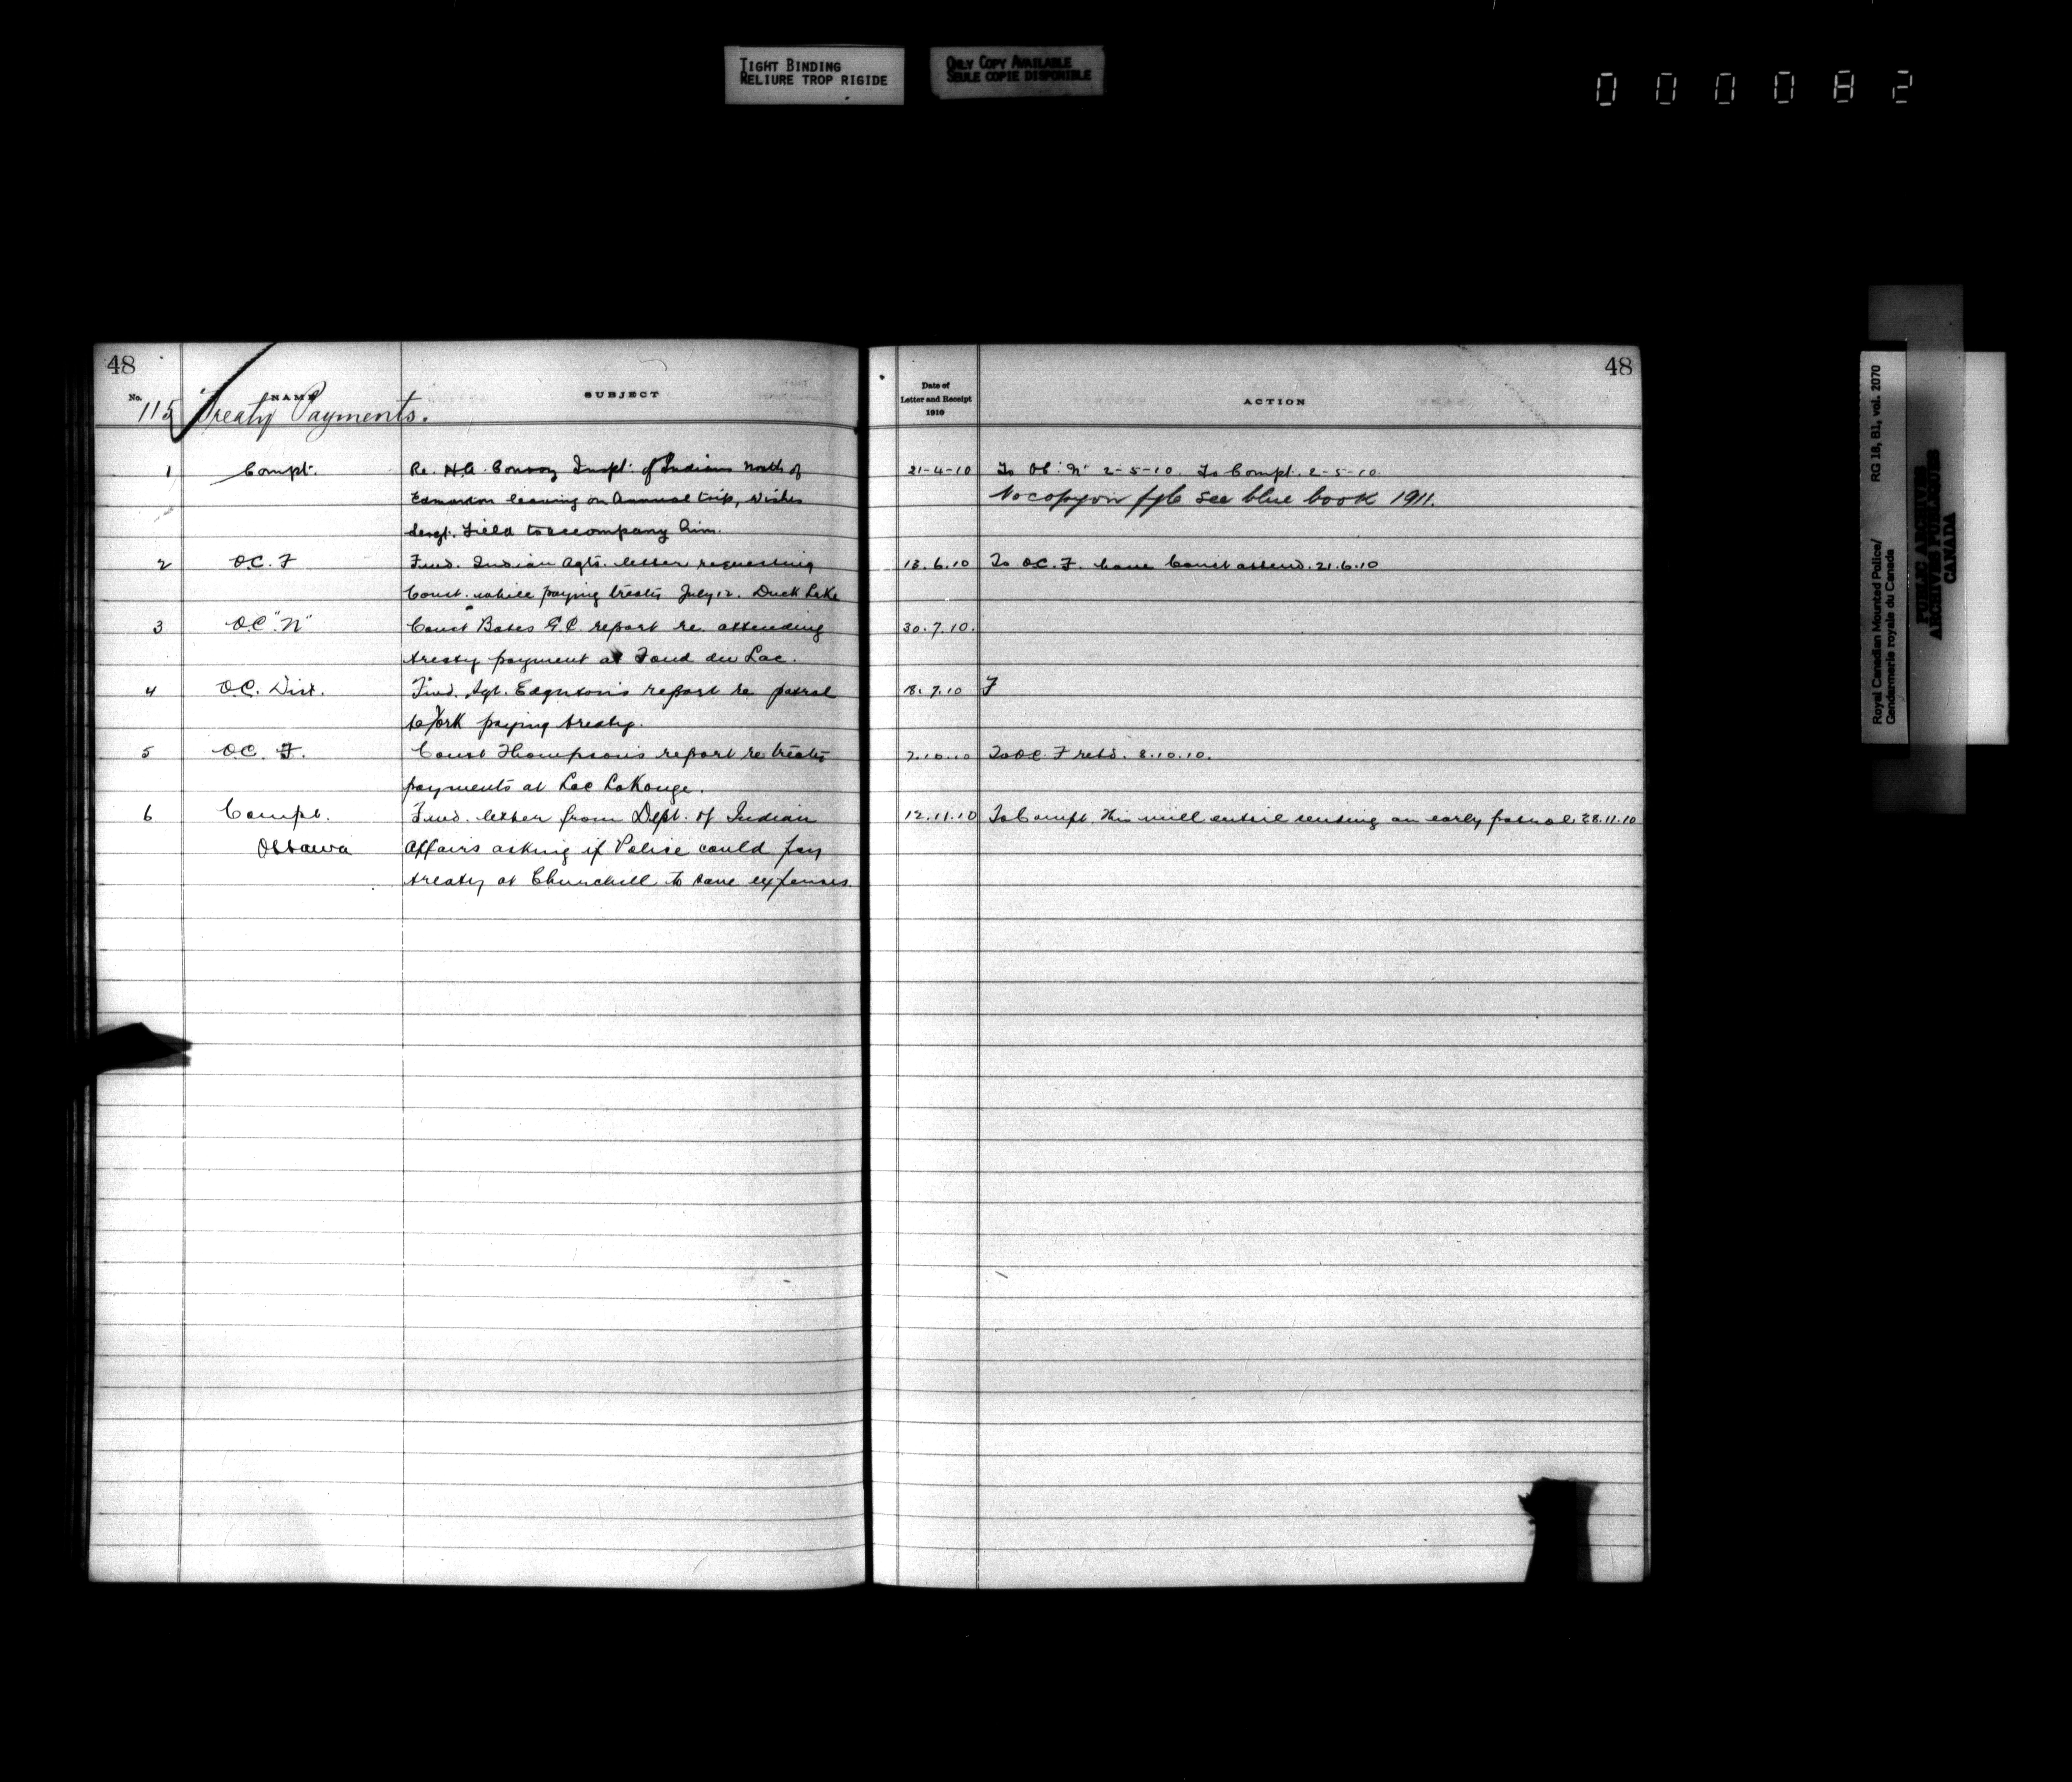 TIGHT BINDING
RELIURE TROP RIGIDE
ONLY COPY AVAILABLE
SEULE COPIE DISPONIBLE
000082
48
No. NAME SUBJECT
115 Treaty Payments.
Date of
Letter and Receipt
1910
ACTION
48
1 Compt. Re. H.A. Conroy Inspt. of Indians north of 21-4-10 To OC "N" 2-5-10. To Compt. 2-5-10.
Edmonton leaving on Annual trip, wishes No copy on see blue book 1911.
Sergt. Field to accompany him.
2 O.C. F Fwd. Indian Agts. letter requesting 13.6.10 To O.C. F. have Const attend. 21.6.10
Const. while paying treaty July 12. Duck Lake
3 O.C. "N" Const Bates G.C. report re. attending 30.7.10.
treaty payment at Fond du Lac.
4 O.C. Dist. Fwd. Sgt. Edgnton's report re patrol 18.7.10 F
to York paying treaty.
5 O.C. F. Const Thompson's report re treaty 7.10.10 To O.C. F retd. 8.10.10.
payments at Lac LaRonge.
6 Compt. Fwd. letter from Dept. of Indian 12.11.10 To Compt. This will entail sending an early patrol 28.11.10
Ottawa Affairs asking if Police could pay
treaty at Churchill to save expenses.
Royal Canadian Mounted Police/ RG 18, B1, vol. 2070
Gendarmerie royale du Canada
PUBLIC ARCHIVES
ARCHIVES PUBLIQUES
CANADA